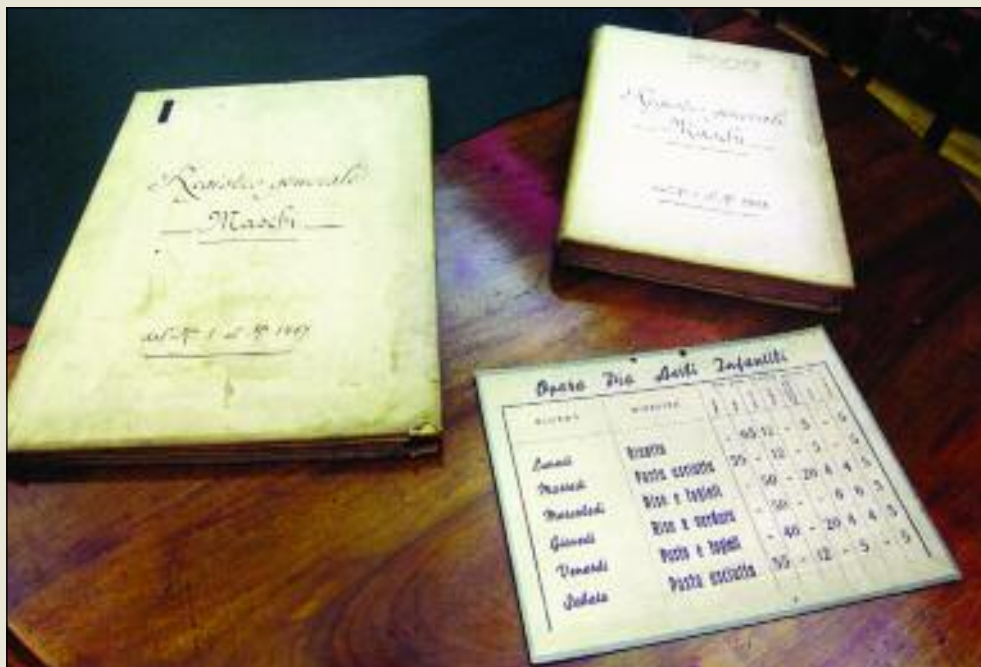 Registro generale
Maschi
dal Nº 1 al Nº 1667
Registro generale
Maschi
dal Nº 1 al Nº
Opera Pia Asili Infantili
GIORNI MINESTRE
Lunedì Risotto - 55 12 - 5 - 5
Martedì Pasta asciutta 55 - 12 - 5 - 5
Mercoledì Riso e fagioli - 50 - 20 4 4 5
Giovedì Riso e verdura - 50 - - 6 6 5
Venerdì Pasta e fagioli - 40 - 20 4 4 5
Sabato Pasta asciutta 55 - 12 - 5 - 5